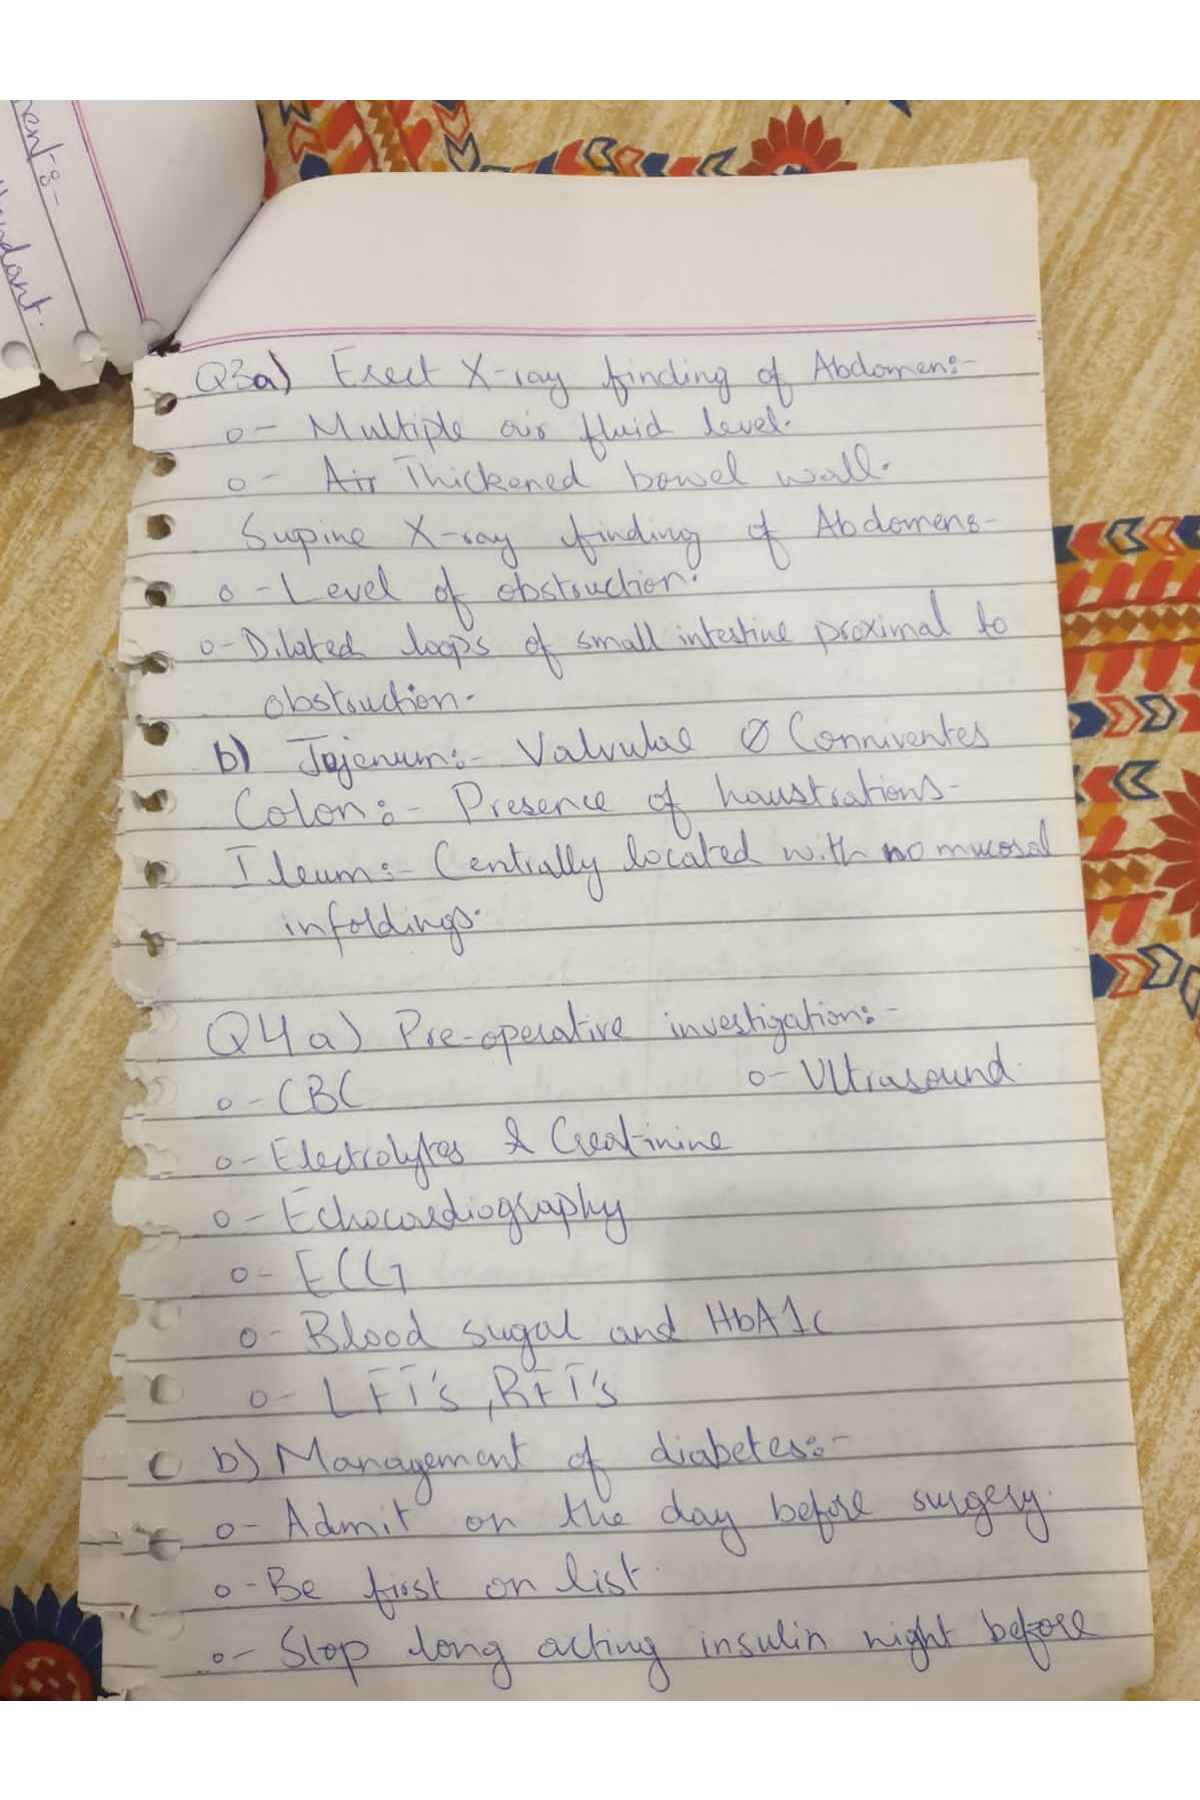 ment:-
ndant.
Q3a) Erect X-ray finding of Abdomen:-
o- Multiple air fluid level.
o- Air Thickened bowel wall.
Supine X-ray finding of Abdomen:-
o- Level of obstruction.
o- Dilated loops of small intestine proximal to
obstruction.
b) Jojenum:- Valvulae Conniventes
Colon:- Presence of haustrations-
Ileum:- Centrally located with no mucosal
infoldings.
Q4a) Pre-operative investigation:-
o- CBC o- Ultrasound.
o- Electrolytes & Creatinine
o- Echocardiography
o- ECG
o- Blood sugar and HbA1c
o- LFT's, RFT's
b) Management of diabetes:-
o- Admit on the day before surgery.
o- Be first on list.
o- Stop long acting insulin night before